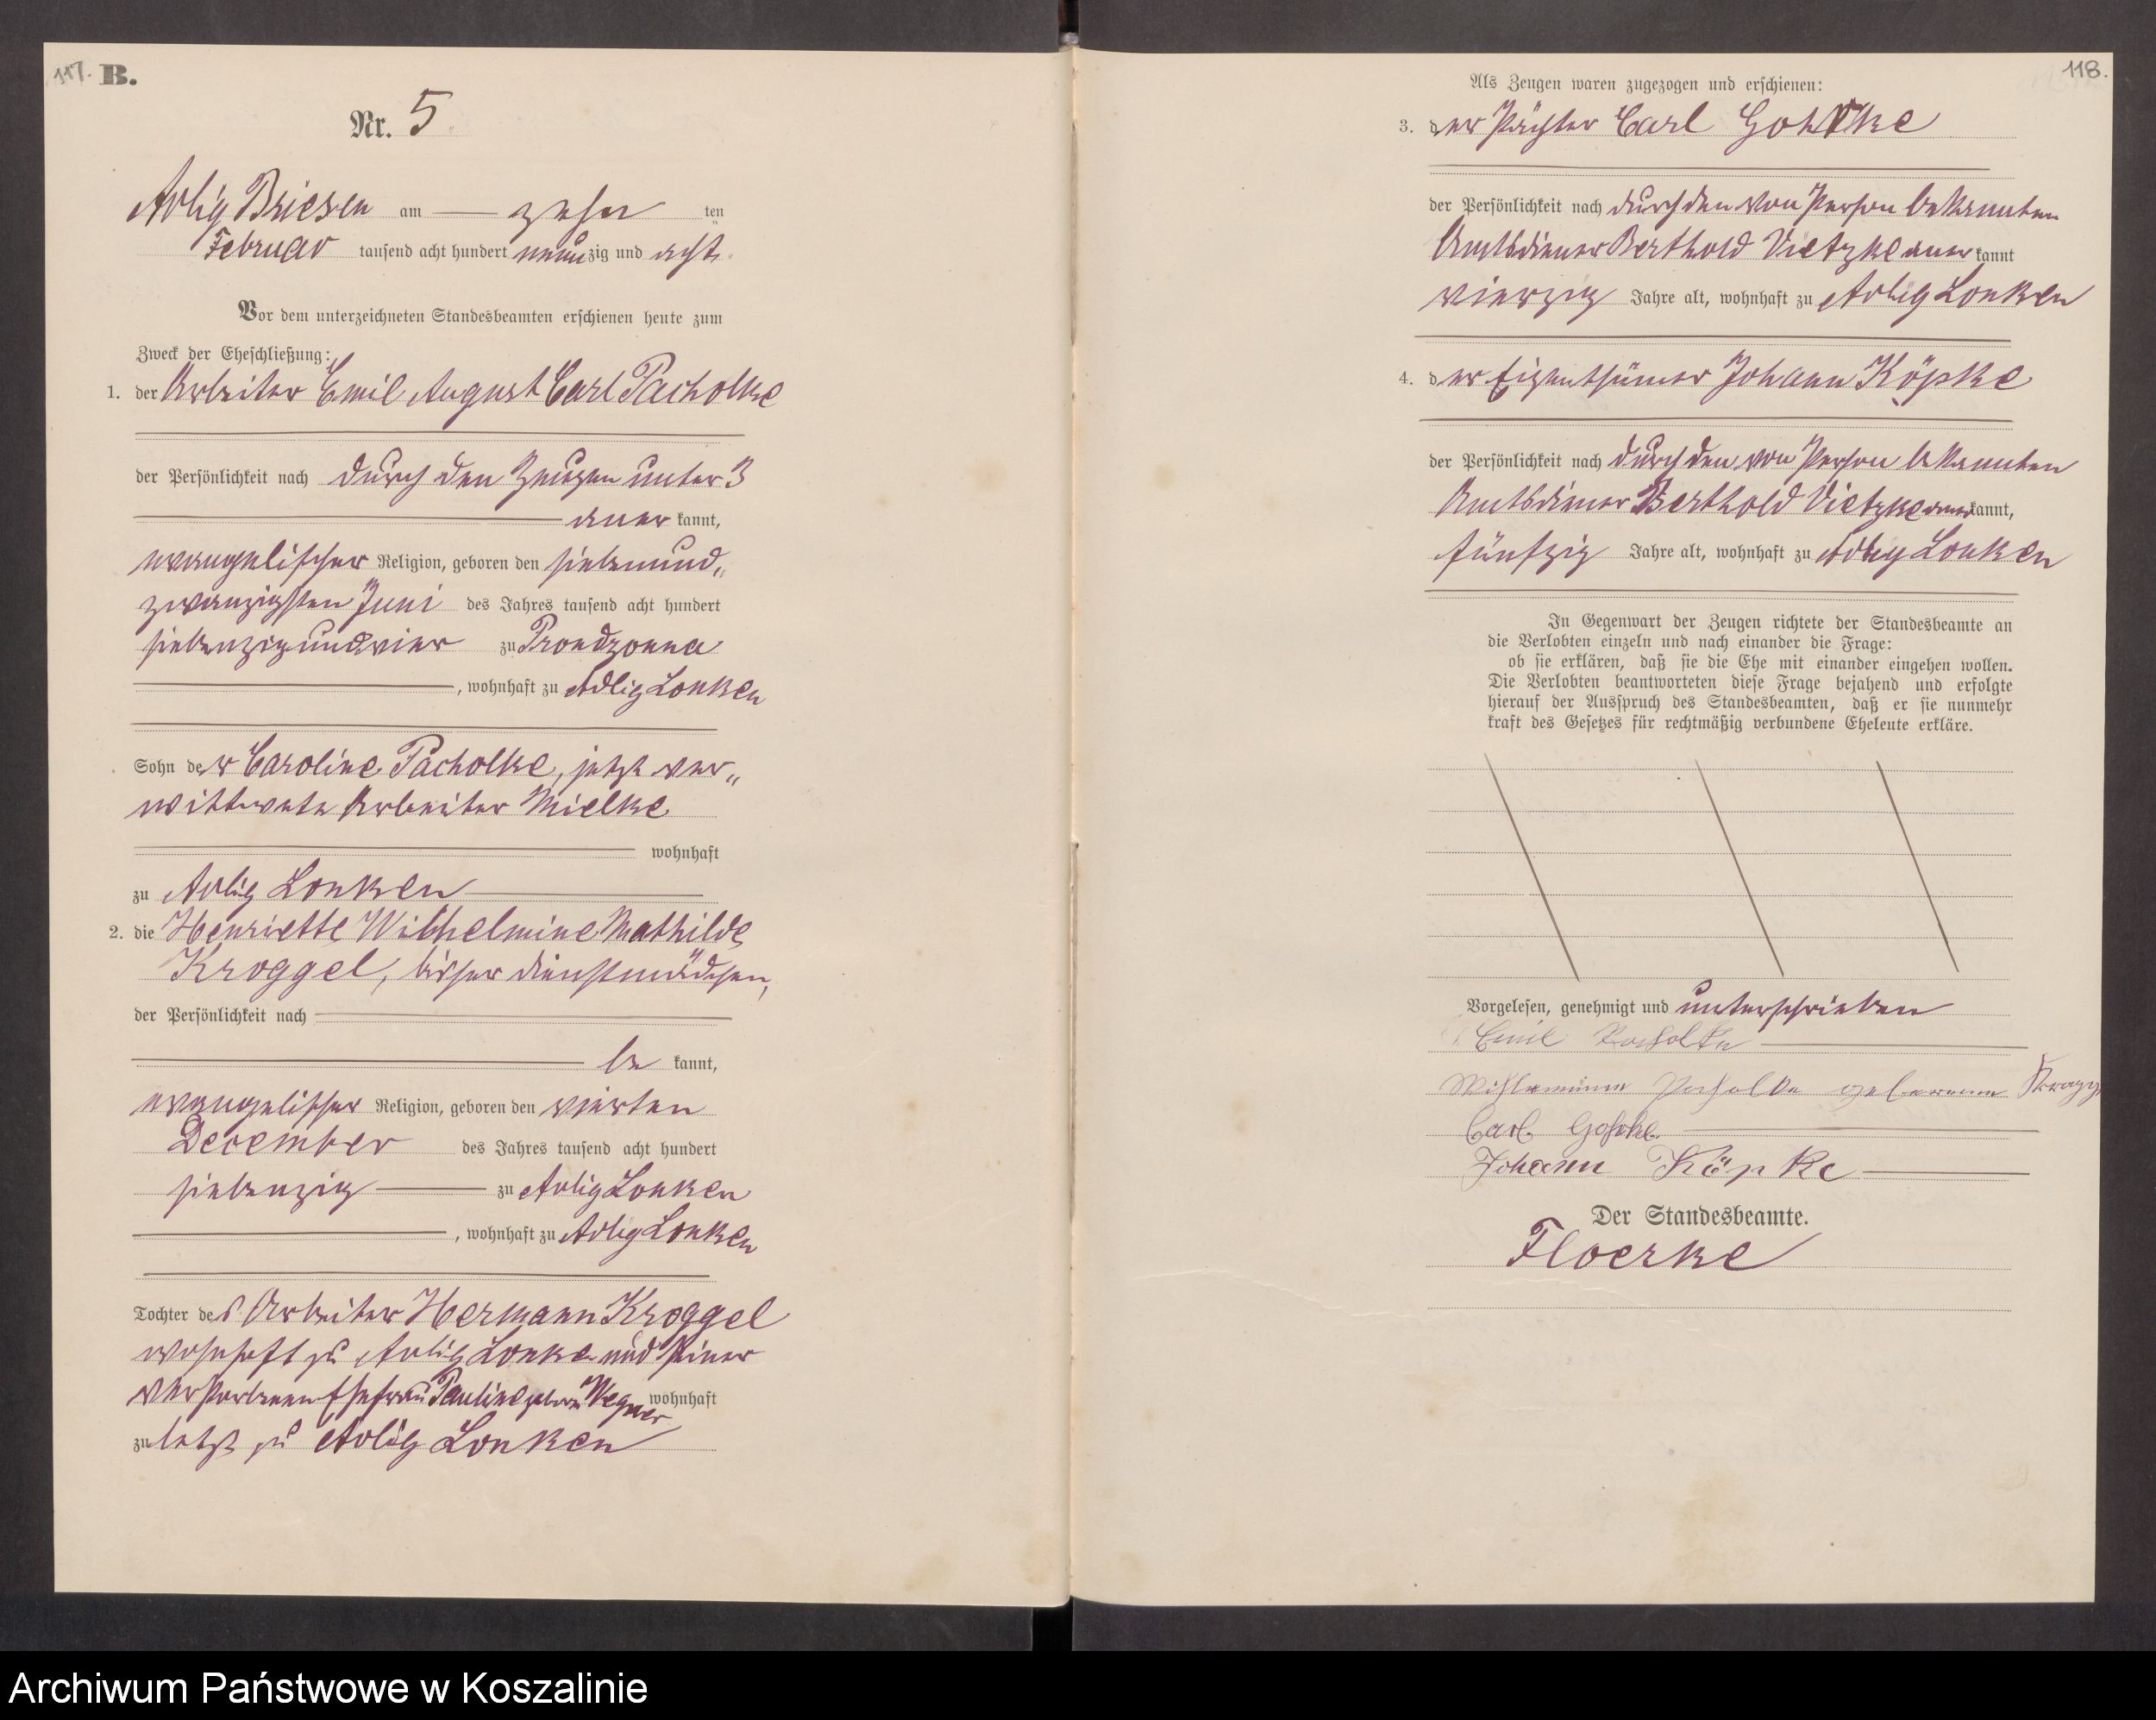 117. B.
Nr. 5.
Adlig Briesen am zehn ten
Februar tausend acht hundert neunzig und acht.
Vor dem unterzeichneten Standesbeamten erschienen heute zum
Zweck der Eheschließung:
1. der Arbeiter Emil August Carl Pacholke
der Persönlichkeit nach durch den Zeugen unter 3
anerkannt,
evangelischer Religion, geboren den siebenund„
zwanzigsten Juni des Jahres tausend acht hundert
siebenzig und vier zu Prondzonna
, wohnhaft zu Adlig Lonken
Sohn der Caroline Pacholke, jetzt ver„
wittwete Arbeiter Mielke
wohnhaft
zu Adlig Lonken
2. die Henriette Wilhelmine Mathilde
Kroggel, bisher Dienstmädchen,
der Persönlichkeit nach
be kannt,
evangelischer Religion, geboren den vierten
December des Jahres tausend acht hundert
siebenzig zu Adlig Lonken
, wohnhaft zu Adlig Lonken
Tochter des Arbeiter Hermann Kroggel
wohnhaft zu Adlig Lonken und seiner
verstorbenen Ehefrau Pauline geborne Wegner wohnhaft
zuletzt zu Adlig Lonken
118.
Als Zeugen waren zugezogen und erschienen:
3. der Pächter Carl Gohtke
der Persönlichkeit nach durch den von Person bekannten
Amtsdiener Berthold Vietzke anerkannt
vierzig Jahre alt, wohnhaft zu Adlig Lonken
4. der Eigenthümer Johann Köpke
der Persönlichkeit nach durch den von Person bekannten
Amtsdiener Berthold Vietzke anerkannt,
fünfzig Jahre alt, wohnhaft zu Adlig Lonken
In Gegenwart der Zeugen richtete der Standesbeamte an
die Verlobten einzeln und nach einander die Frage:
ob sie erklären, daß sie die Ehe mit einander eingehen wollen.
Die Verlobten beantworteten diese Frage bejahend und erfolgte
hierauf der Ausspruch des Standesbeamten, daß er sie nunmehr
kraft des Gesetzes für rechtmäßig verbundene Eheleute erkläre.
Vorgelesen, genehmigt und unterschrieben
Emil Pacholke
Wilhelmine Pacholke geborene
Carl
Johann Köpke
Der Standesbeamte.
Floerke
Archiwum Państwowe w Koszalinie